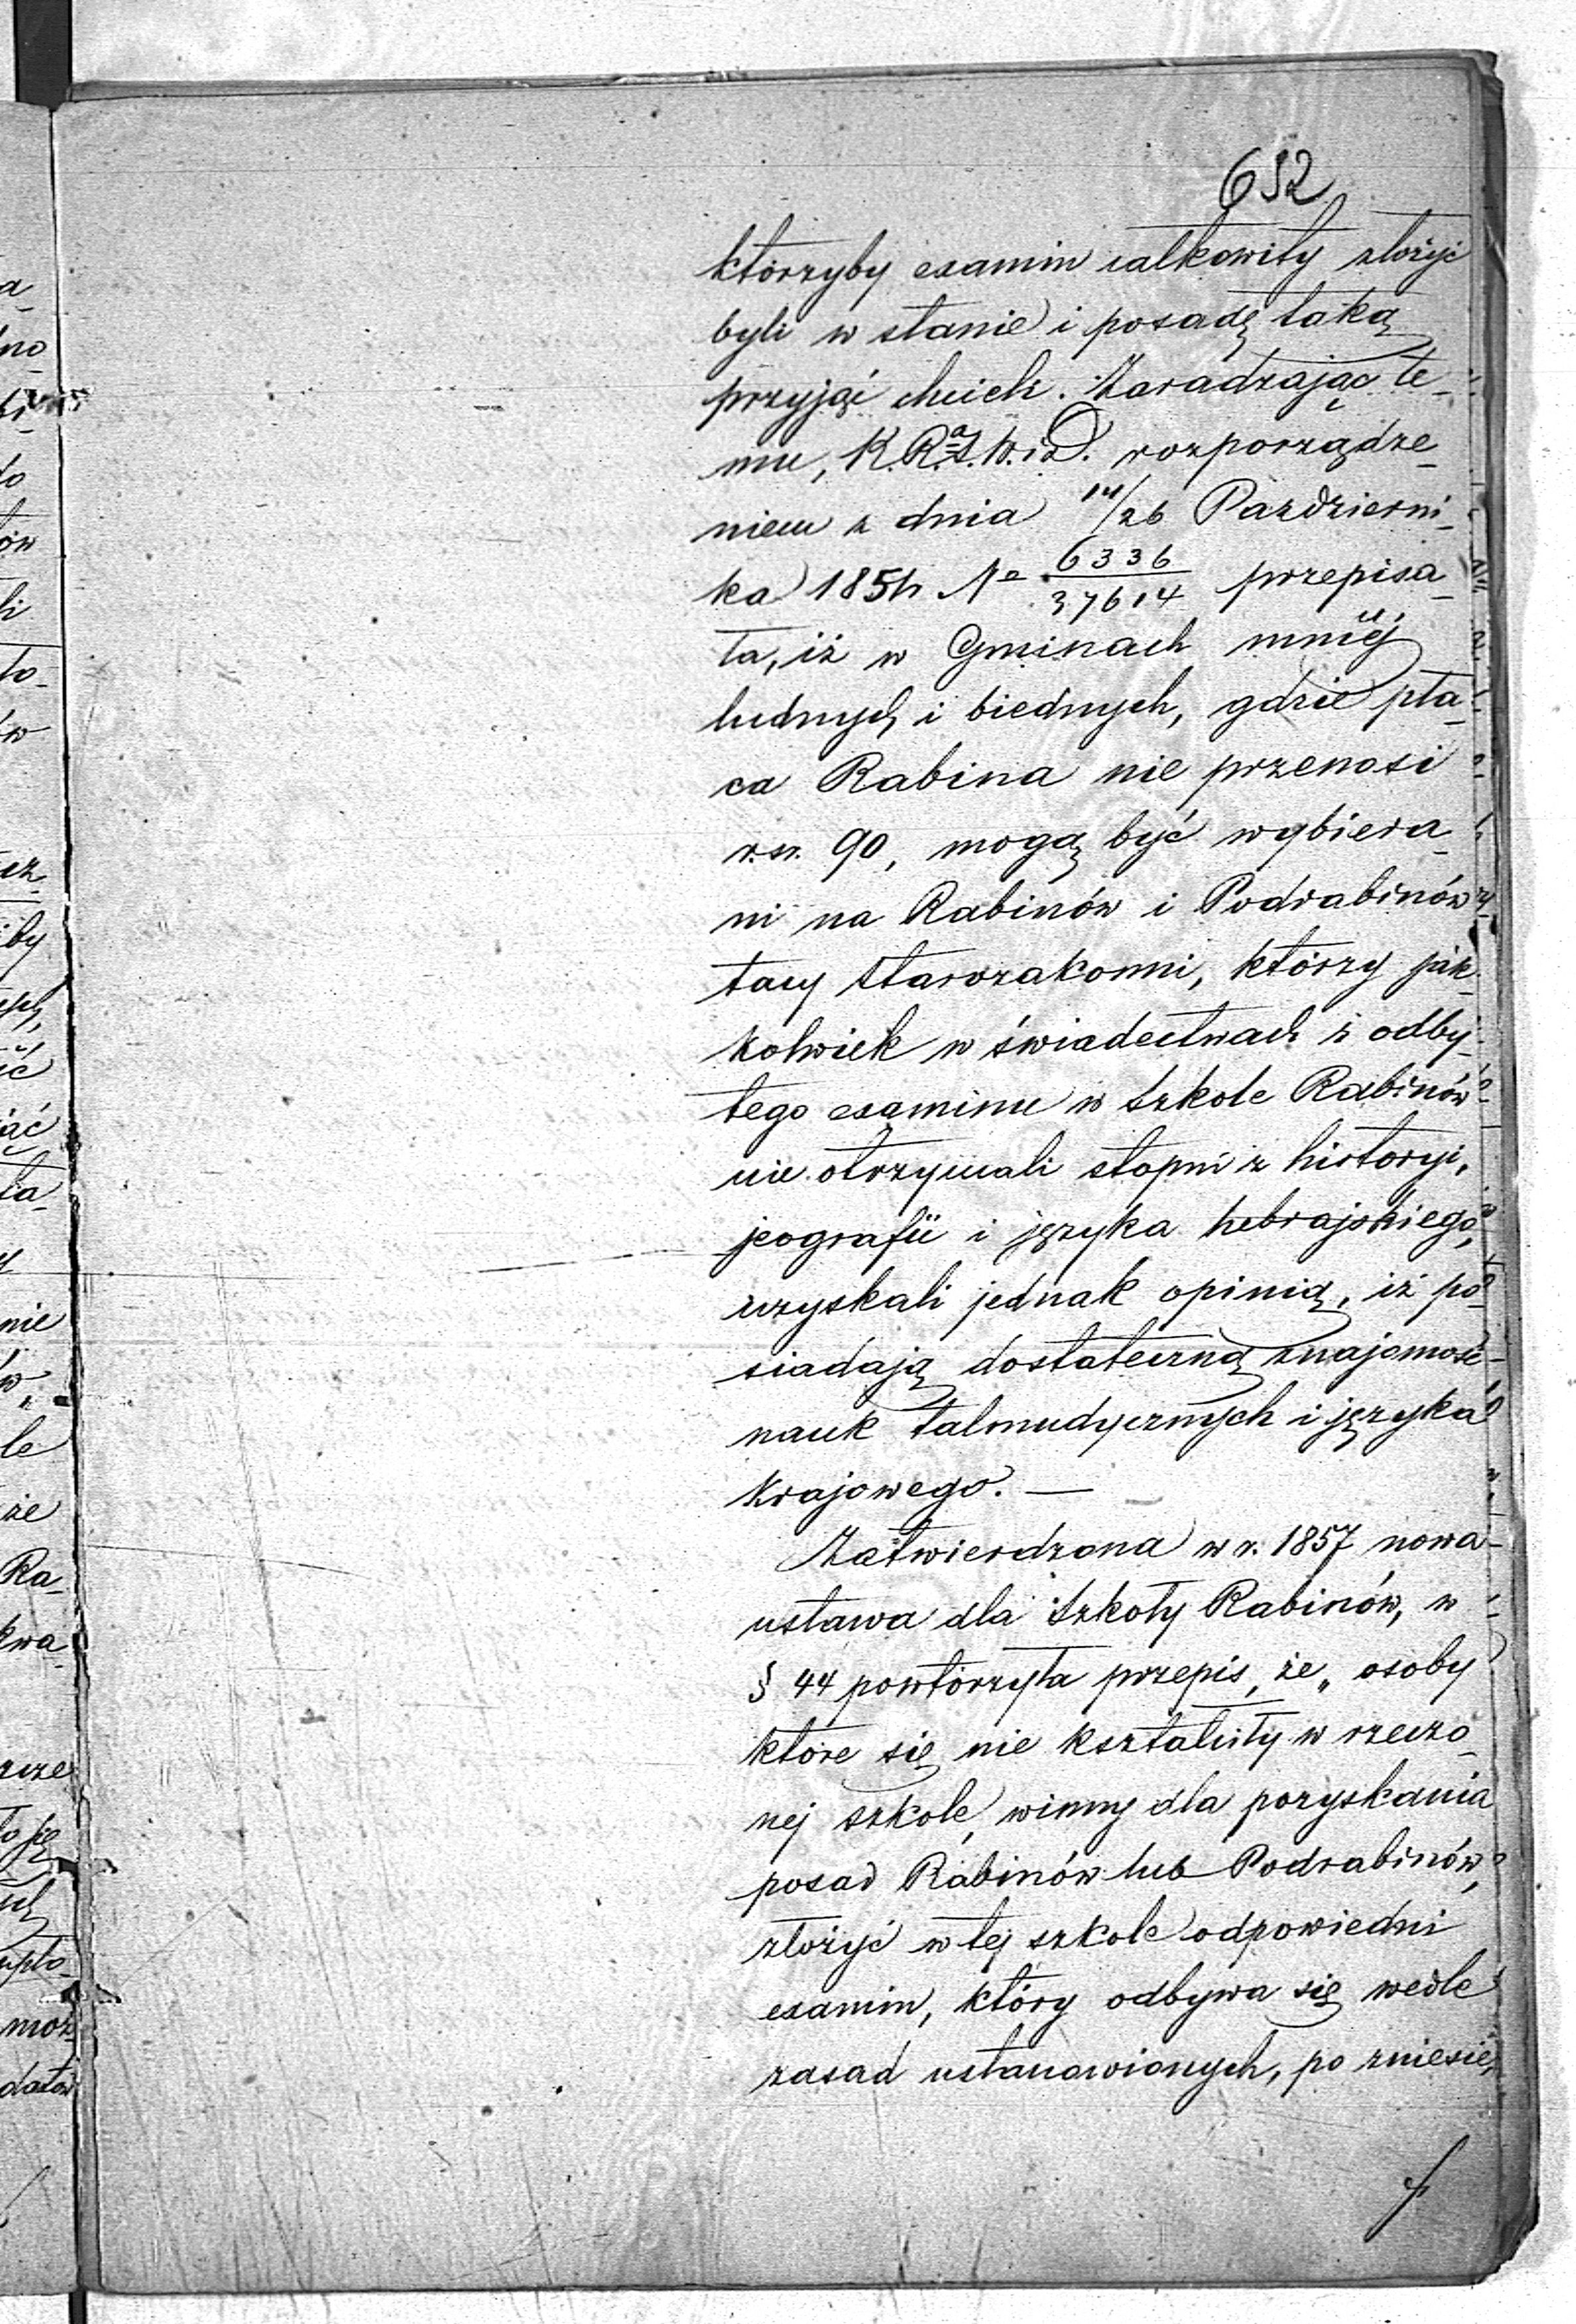 652
którzyby examin całkowity złożyć
byli w stanie i posadę taką
przyjąć chcieli. Zaradzając te-
mu, K.R.S.W.iD. rozporządze-
niem z dnia 14/26 Październi-
ka 1854 No 6336/37614 przepisa-
ła, iż w Gminach mniej
ludnych i biednych, gdzie pła-
ca Rabina nie przenosi
rsr. 90, mogą być wybiera-
ni na Rabinów i Podrabinów
tacy Starozakonni, którzy jak-
kolwiek w świadectwach z odby-
tego examinu w Szkole Rabinów
nie otrzymali stopni z historyi,
jeografii i języka hebrajskiego,
uzyskali jednak opinią, iż po-
siadają dostateczną znajomość
nauk talmudycznych i języka
krajowego. —
Zatwierdzona w r. 1857 nowa
ustawa dla Szkoły Rabinów, w
§ 44 powtórzyła przepis, że „osoby
które się nie kształciły w rzeczo-
nej szkole, winny dla pozyskania
posad Rabinów lub Podrabinów,
złożyć w tej szkole odpowiedni
examin, który odbywa się wedle
zasad ustanowionych, po zniesie-